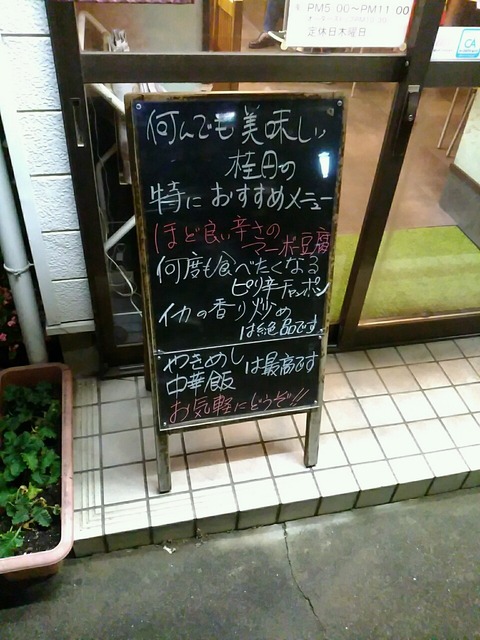 PM5:00~PM11:00
定休日木曜日
CA
何んでも美味しい
桂円の
特におすすめメニュー
ほど良い辛さの
マーボ豆腐
何度も食べたくなる
ピリ辛チャンポン
イカの香り炒め
は絶品です
やきめし
中華飯
は最高です
お気軽にどうぞ!!